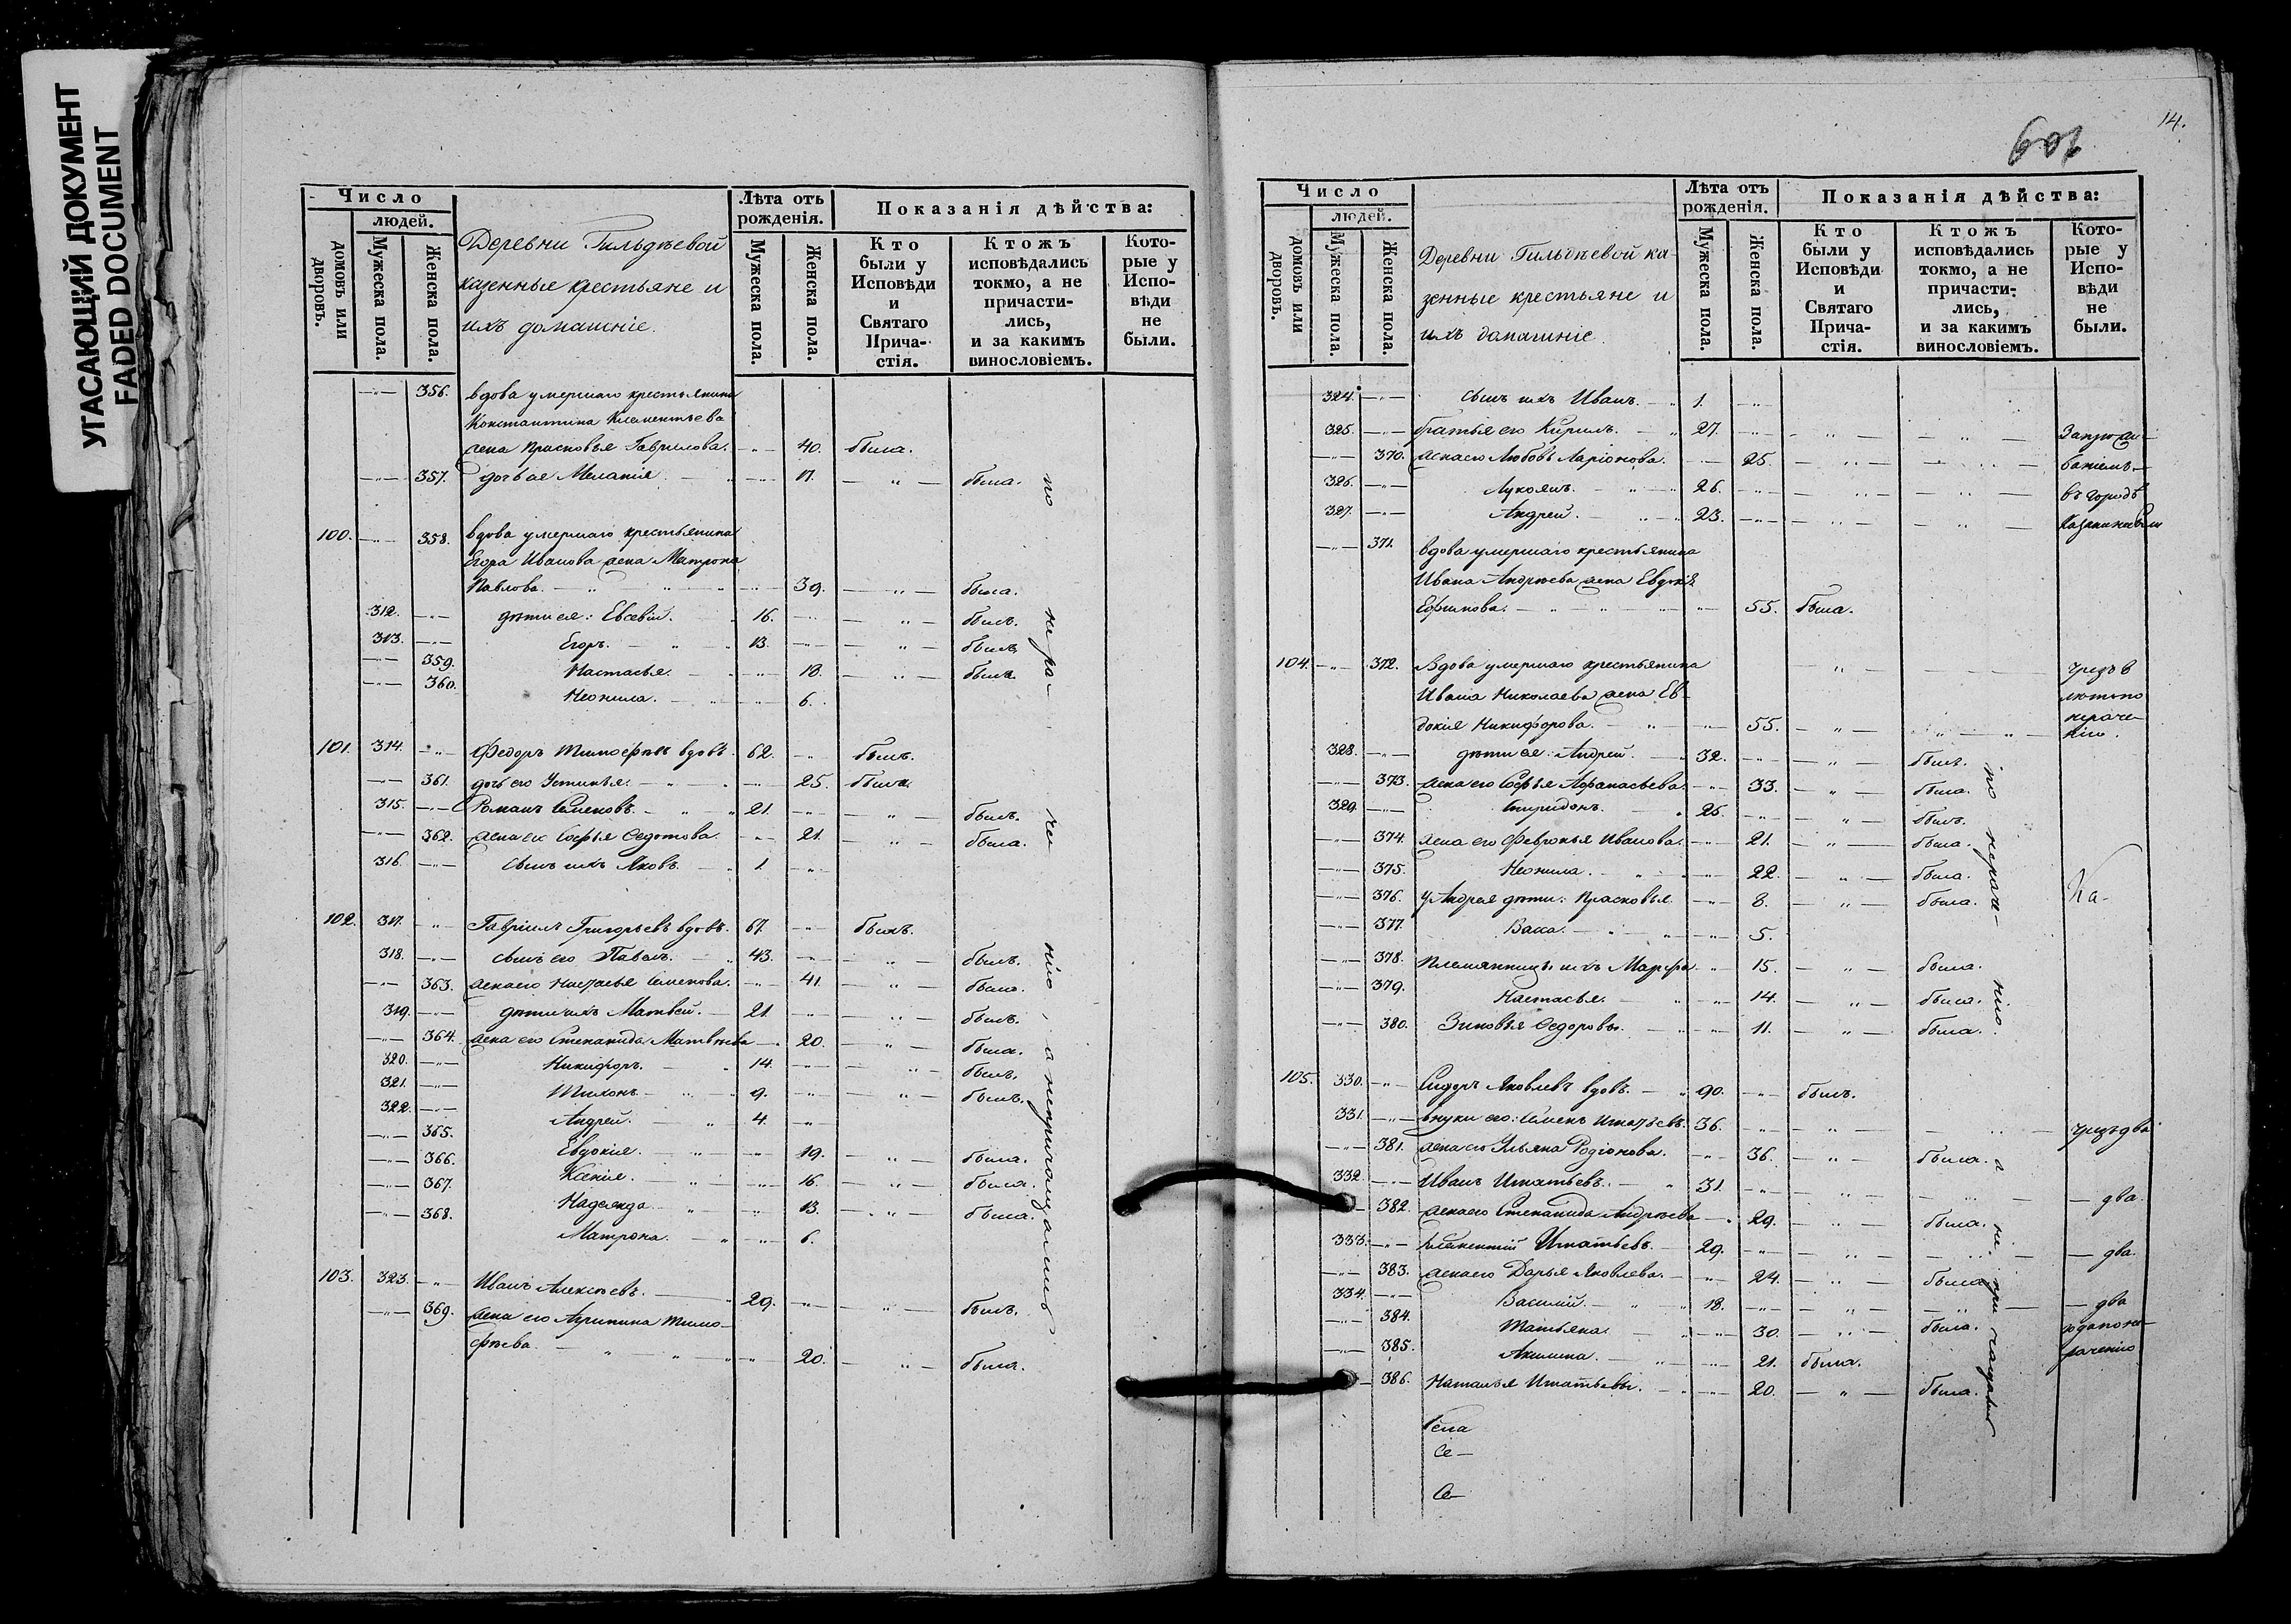 УГАСАЮЩИЙ ДОКУМЕНТ
FADED DOCUMENT
Число
людей.
домовъ или дворовъ.
Мужеска пола.
Женска пола.
Деревни Гильдѣевой
казенные крестьяне и
ихъ домашніе.
Лѣта отъ рожденія.
Мужеска пола.
Женска пола.
Показанія дѣйства:
Кто были у Исповѣди и Святаго Прича-стія.
Ктожъ исповѣдались токмо, а не причасти-лись, и за какимъ винословіемъ.
Кото-рые у Испо-вѣди не были.
356. вдова умершаго крестьянина
Константина Клементьева
жена Прасковья Гаврилова. 40. была.
357. дочь ея Меланія 17. была.
100. 358. вдова умершаго крестьянина
Егора Иванова жена Матрона
Павлова. 39. была.
312. дѣти ея: Евсевій. 16. былъ.
313. Егоръ. 13. былъ
359. Настасья. 18. была
360. Неонила. 6.
101. 314. Федоръ Тимофѣевъ вдовъ. 62. былъ.
361. дочь его Устинья. 25. была
315. Романъ Семеновъ. 21. былъ.
362. жена ег Софья Федотова. 21. была.
316. сынъ ихъ Яковъ. 1.
102. 317. Гавріилъ Григорьевъ вдовъ. 67. былъ.
318. сынъ его Павелъ. 43. былъ.
363. жена его Настасья Семенова. 41. была.
319. дѣти ихъ Матвей. 21. былъ.
364. жена его Степанида Матвѣева 20. была.
320. Никифоръ. 14. былъ.
321. Тихонъ 9. былъ.
322. Андрей. 4.
365. Евдокія. 19. была.
366. Ксенія. 16. была.
367. Надежда 13. была.
368. Матрона. 6.
103. 323. Иванъ Алексѣевъ. 29. былъ.
369. жена его Агрипина Тимо-
фѣева. 20. была.
по нера- че нію, а непричащались
109
14.
Число
людей.
домовъ или дворовъ.
Мужеска пола.
Женска пола.
Деревни Гильдѣевой ка-
зенные крестьяне и
ихъ домашніе
Лѣта отъ рожденія.
Мужеска пола.
Женска пола.
Показанія дѣйства:
Кто были у Исповѣди и Святаго Прича-стія.
Ктожъ исповѣдались токмо, а не причасти-лись, и за какимъ винословіемъ.
Кото-рые у Испо-вѣди не были.
324. сынъ ихъ Иванъ. 1.
325. братья его Кирилъ. 27.
370. жена его Любовь Ларіонова. 25.
326. Лукоянъ. 26. въ городѣ
327. Андрей. 23.
371. вдова умершаго крестьянина
Ивана Андрѣева жена Евдокія
Ефимова. 55. была.
104. 372. Вдова умершаго крестьянина
Ивана Николаева жена Ев-
докія Никифорова. 55.
328. дѣти ея: Андрей. 32. былъ.
373. жена его Софья Афанасьева. 33. была.
329. Спиридонъ. 25. былъ.
374. жена его Февронья Иванова. 21. была.
375. Неонила. 22. была.
376. у Андрея дѣти: Прасковья 8. была.
377. Васса. 5.
378. Племянницы ихъ Марфа 15. была.
379. Настасья. 14. была.
380. Зиновья Федоровы. 11. была.
Ка-
по нераче- нію.
105. 330. Сидоръ Яковлевъ вдовъ. 90. былъ.
331. внуки его: Семенъ Игнатьевъ. 36. чрезъ два
381. жена его Ульяна Родіонова. 36. была.
332. Иванъ Игнатьевъ. 31. два.
382. жена его Степанида Андрѣева 29. была.
333. Игнатьевъ. 29. два.
383. жена его Дарья Яковлева. 24. была
334. Василій. 18. два
384. Татьяна. 30. была. года по не-
385. Акилина. 21. была. раченію
386. Наталья Игнатьевы. 20. была.
Села
Се-
Се-